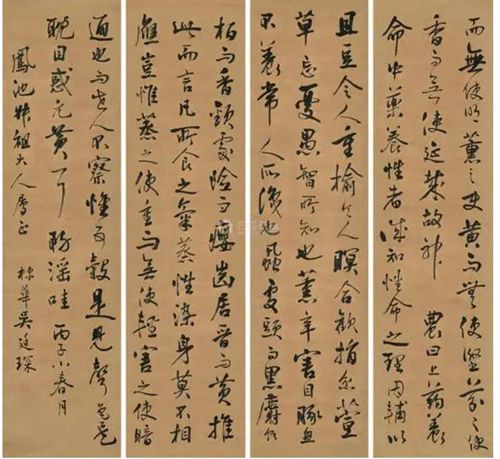 而無使明薰之使黃而無使堅芬之使
香而無使延哉故神農曰上藥養
命中藥養性者誠知性命之理因輔以
且豆令人重榆令人瞑合歡捐忿萱
草忘憂愚智所知也薰辛害目豚魚
不養常人所識也蝨處頭而黑麝食
柏而香頸處險而癭齒居晉而黃推
此而言凡所食之氣蒸性染身莫不相
應豈惟蒸之使重而無使輕害之使暗
通也而世人不察惟五穀是見聲色是
耽目惑元黃耳務淫哇 丙子小春月
鳳池叔祖大人屬正 棣華吳廷琛